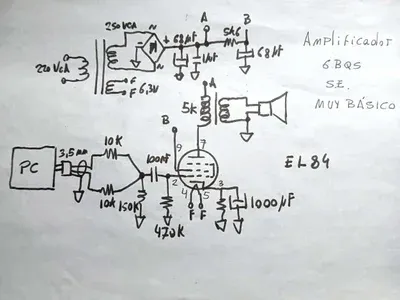 250VCA
A
B
+ 68µf
5k6
68µf
220VCA
F
F
6,3V
Amplificador
6BQ5
S.E.
MUY BÁSICO
A
5k
B
PC
3,5mm
10K
10K
150K
100nf
470K
9
7
2
3
4
5
F F
1000µF
EL84